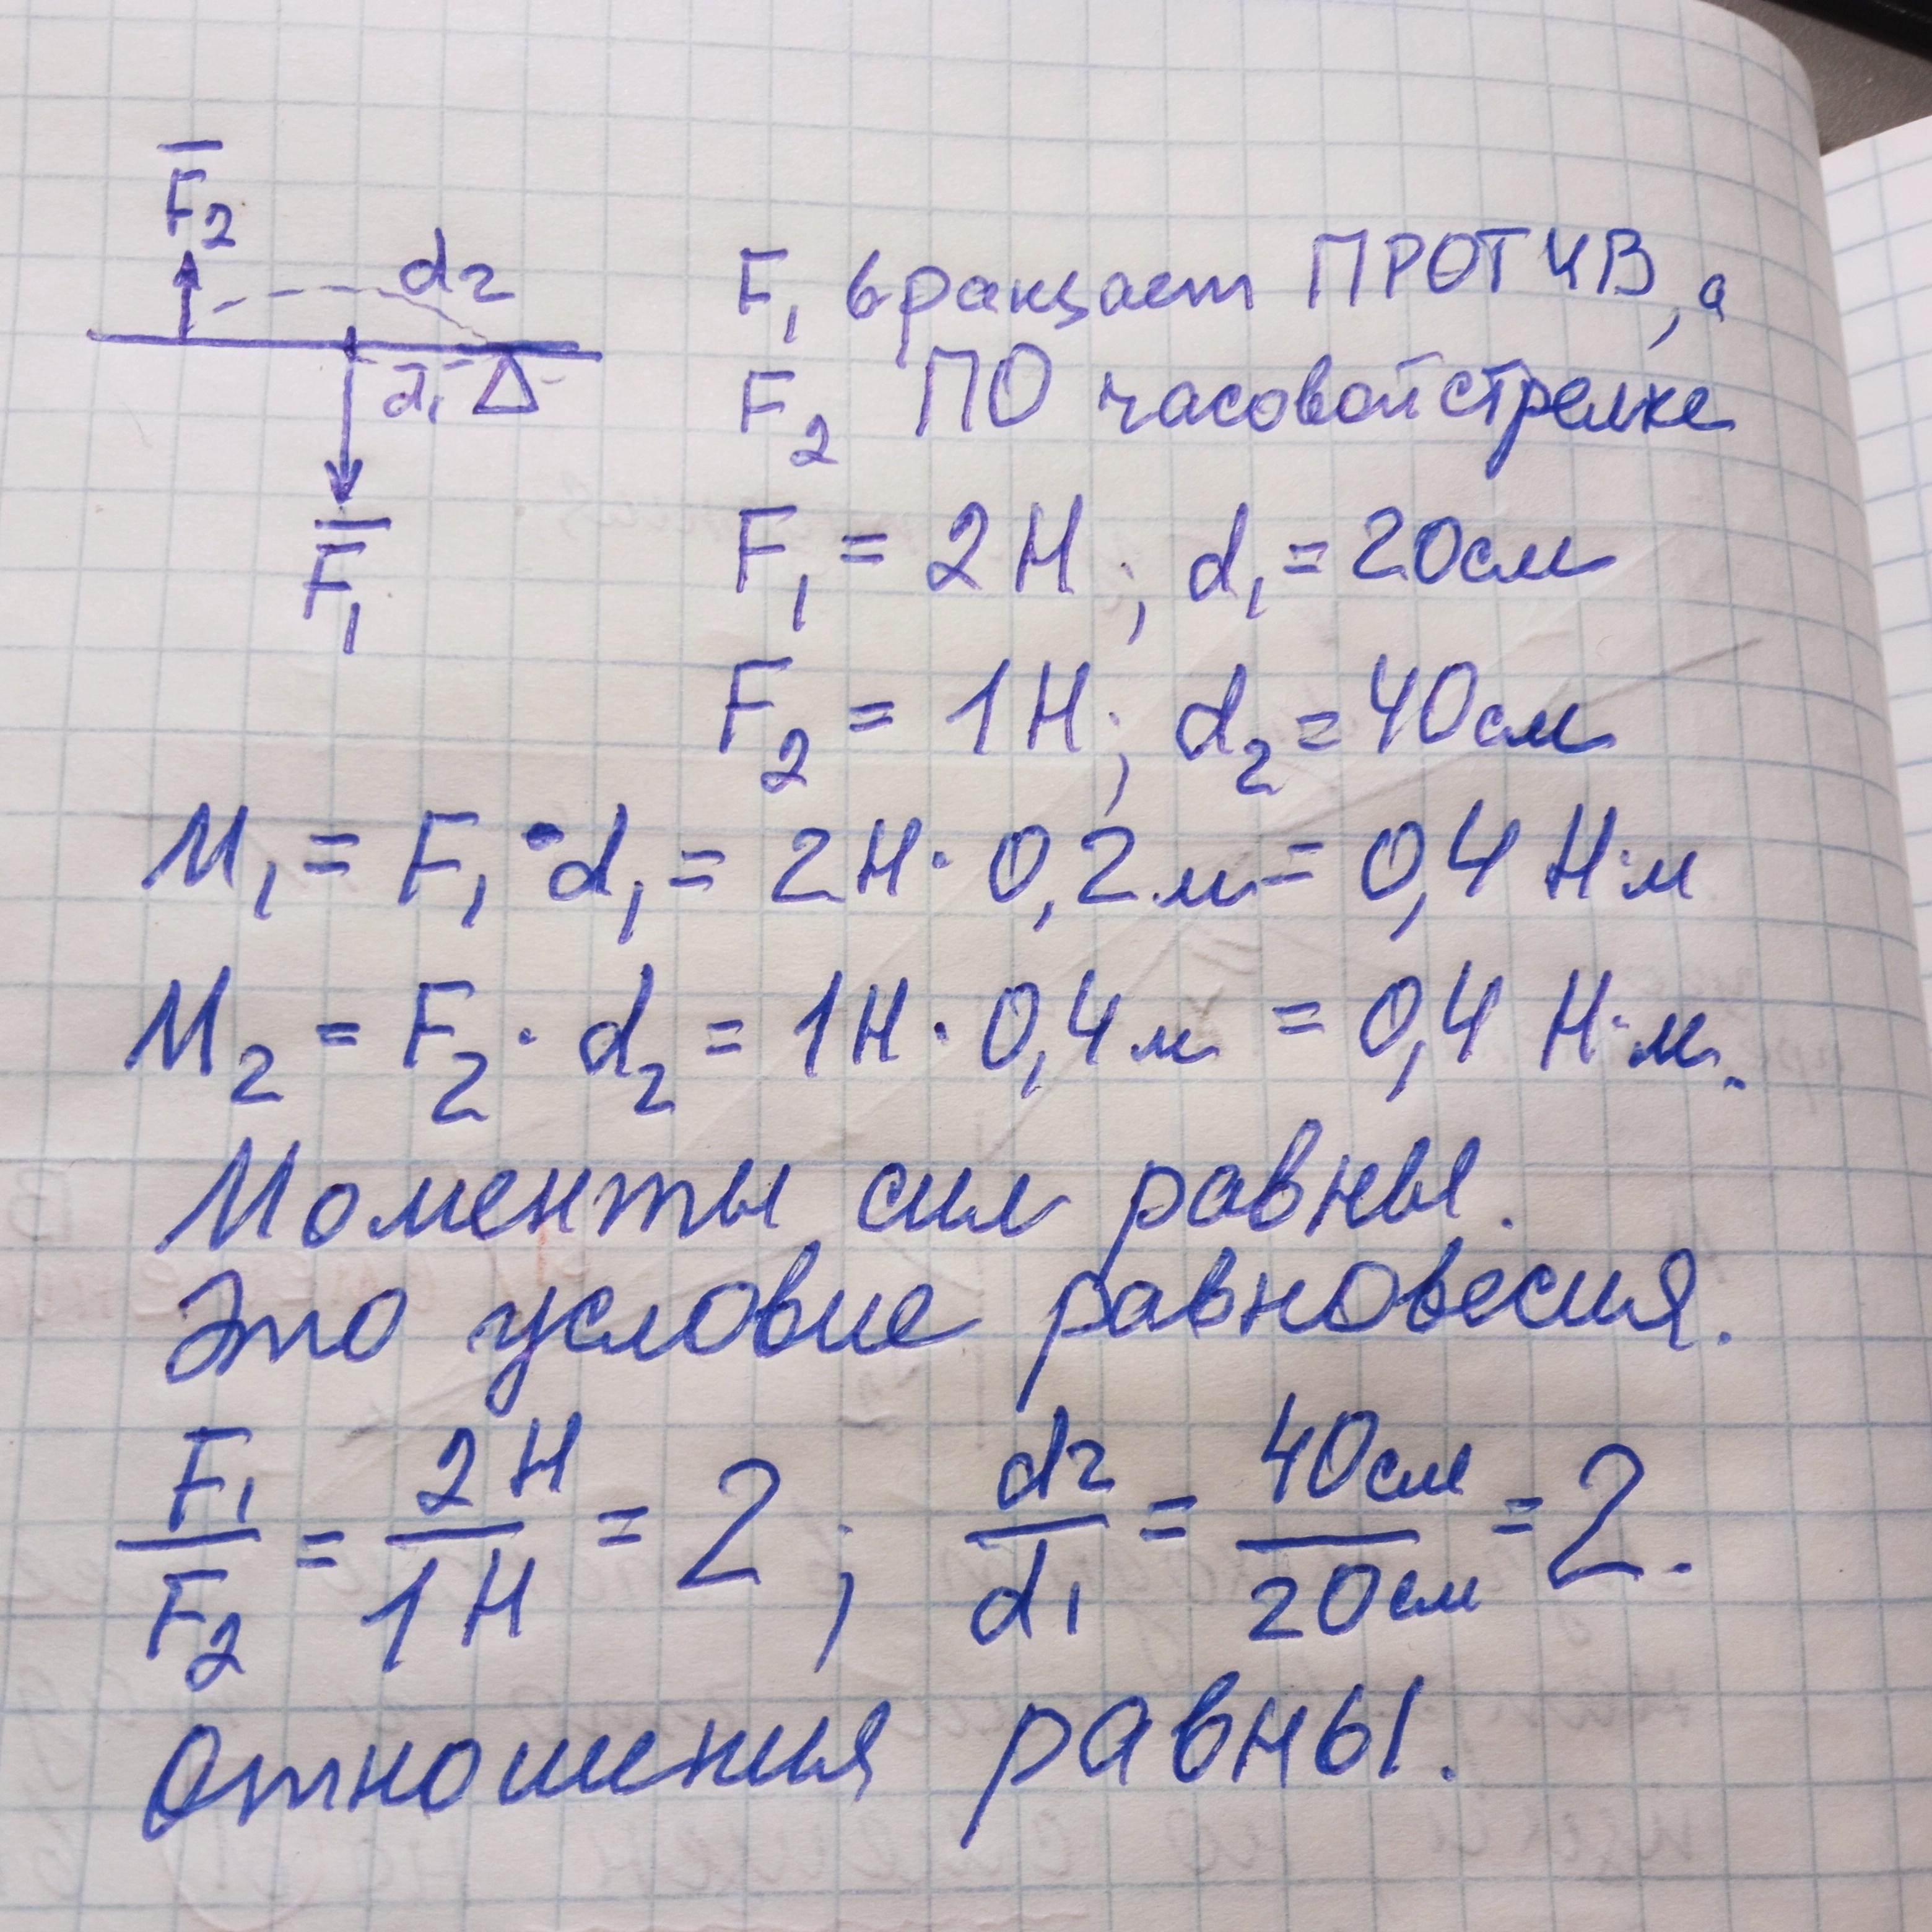 F̅₂
d₂
d₁
F̅₁
F₁ вращает ПРОТИВ, а
F₂ ПО часовой стрелке
F₁ = 2 Н; d₁ = 20 см
F₂ = 1 Н; d₂ = 40 см
M₁ = F₁ · d₁ = 2 Н · 0,2 м = 0,4 Н·м
M₂ = F₂ · d₂ = 1 Н · 0,4 м = 0,4 Н·м.
Моменты сил равны.
Это условие равновесия.
F₁/F₂ = 2 Н/1 Н = 2; d₂/d₁ = 40 см/20 см = 2.
Отношения равны.